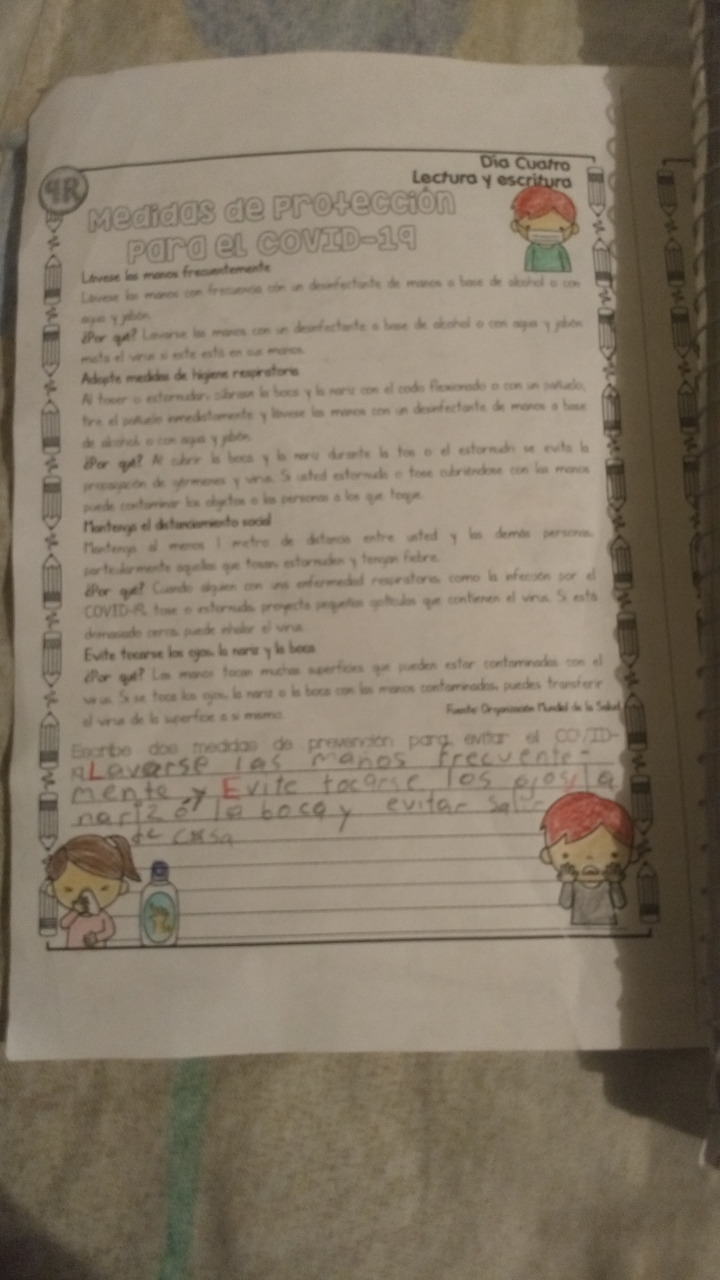 4R
Día Cuatro
Lectura y escritura
Medidas de Protección
Para el COVID-19
Lávese las manos frecuentemente
Lávese las manos con frecuencia con un desinfectante de manos a base de alcohol o con
agua y jabón.
¿Por qué? Lavarse las manos con un desinfectante a base de alcohol o con agua y jabón
mata el virus si este está en sus manos.
Adopte medidas de higiene respiratoria
Al toser o estornudar, cúbrase la boca y la nariz con el codo flexionado o con un pañuelo;
tire el pañuelo inmediatamente y lávese las manos con un desinfectante de manos a base
de alcohol, o con agua y jabón.
¿Por qué? Al cubrir la boca y la nariz durante la tos o el estornudo se evita la
propagación de gérmenes y virus. Si usted estornuda o tose cubriéndose con las manos
puede contaminar los objetos o las personas a los que toque.
Mantenga el distanciamiento social
Mantenga al menos 1 metro de distancia entre usted y las demás personas,
particularmente aquellas que tosan, estornuden y tengan fiebre.
¿Por qué? Cuando alguien con una enfermedad respiratoria, como la infección por el
COVID-19, tose o estornuda, proyecta pequeñas gotículas que contienen el virus. Si está
demasiado cerca, puede inhalar el virus.
Evite tocarse los ojos, la nariz y la boca
¿Por qué? Las manos tocan muchas superficies que pueden estar contaminadas con el
virus. Si se toca los ojos, la nariz o la boca con las manos contaminadas, puedes transferir
el virus de la superficie a si mismo.
Fuente: Organización Mundial de la Salud
Escribe dos medidas de prevención para evitar el COVID-
19 Lavarse las manos frecuente-
mente y Evite tocarse los ojos, la
nariz ó la boca y evitar salir
de casa